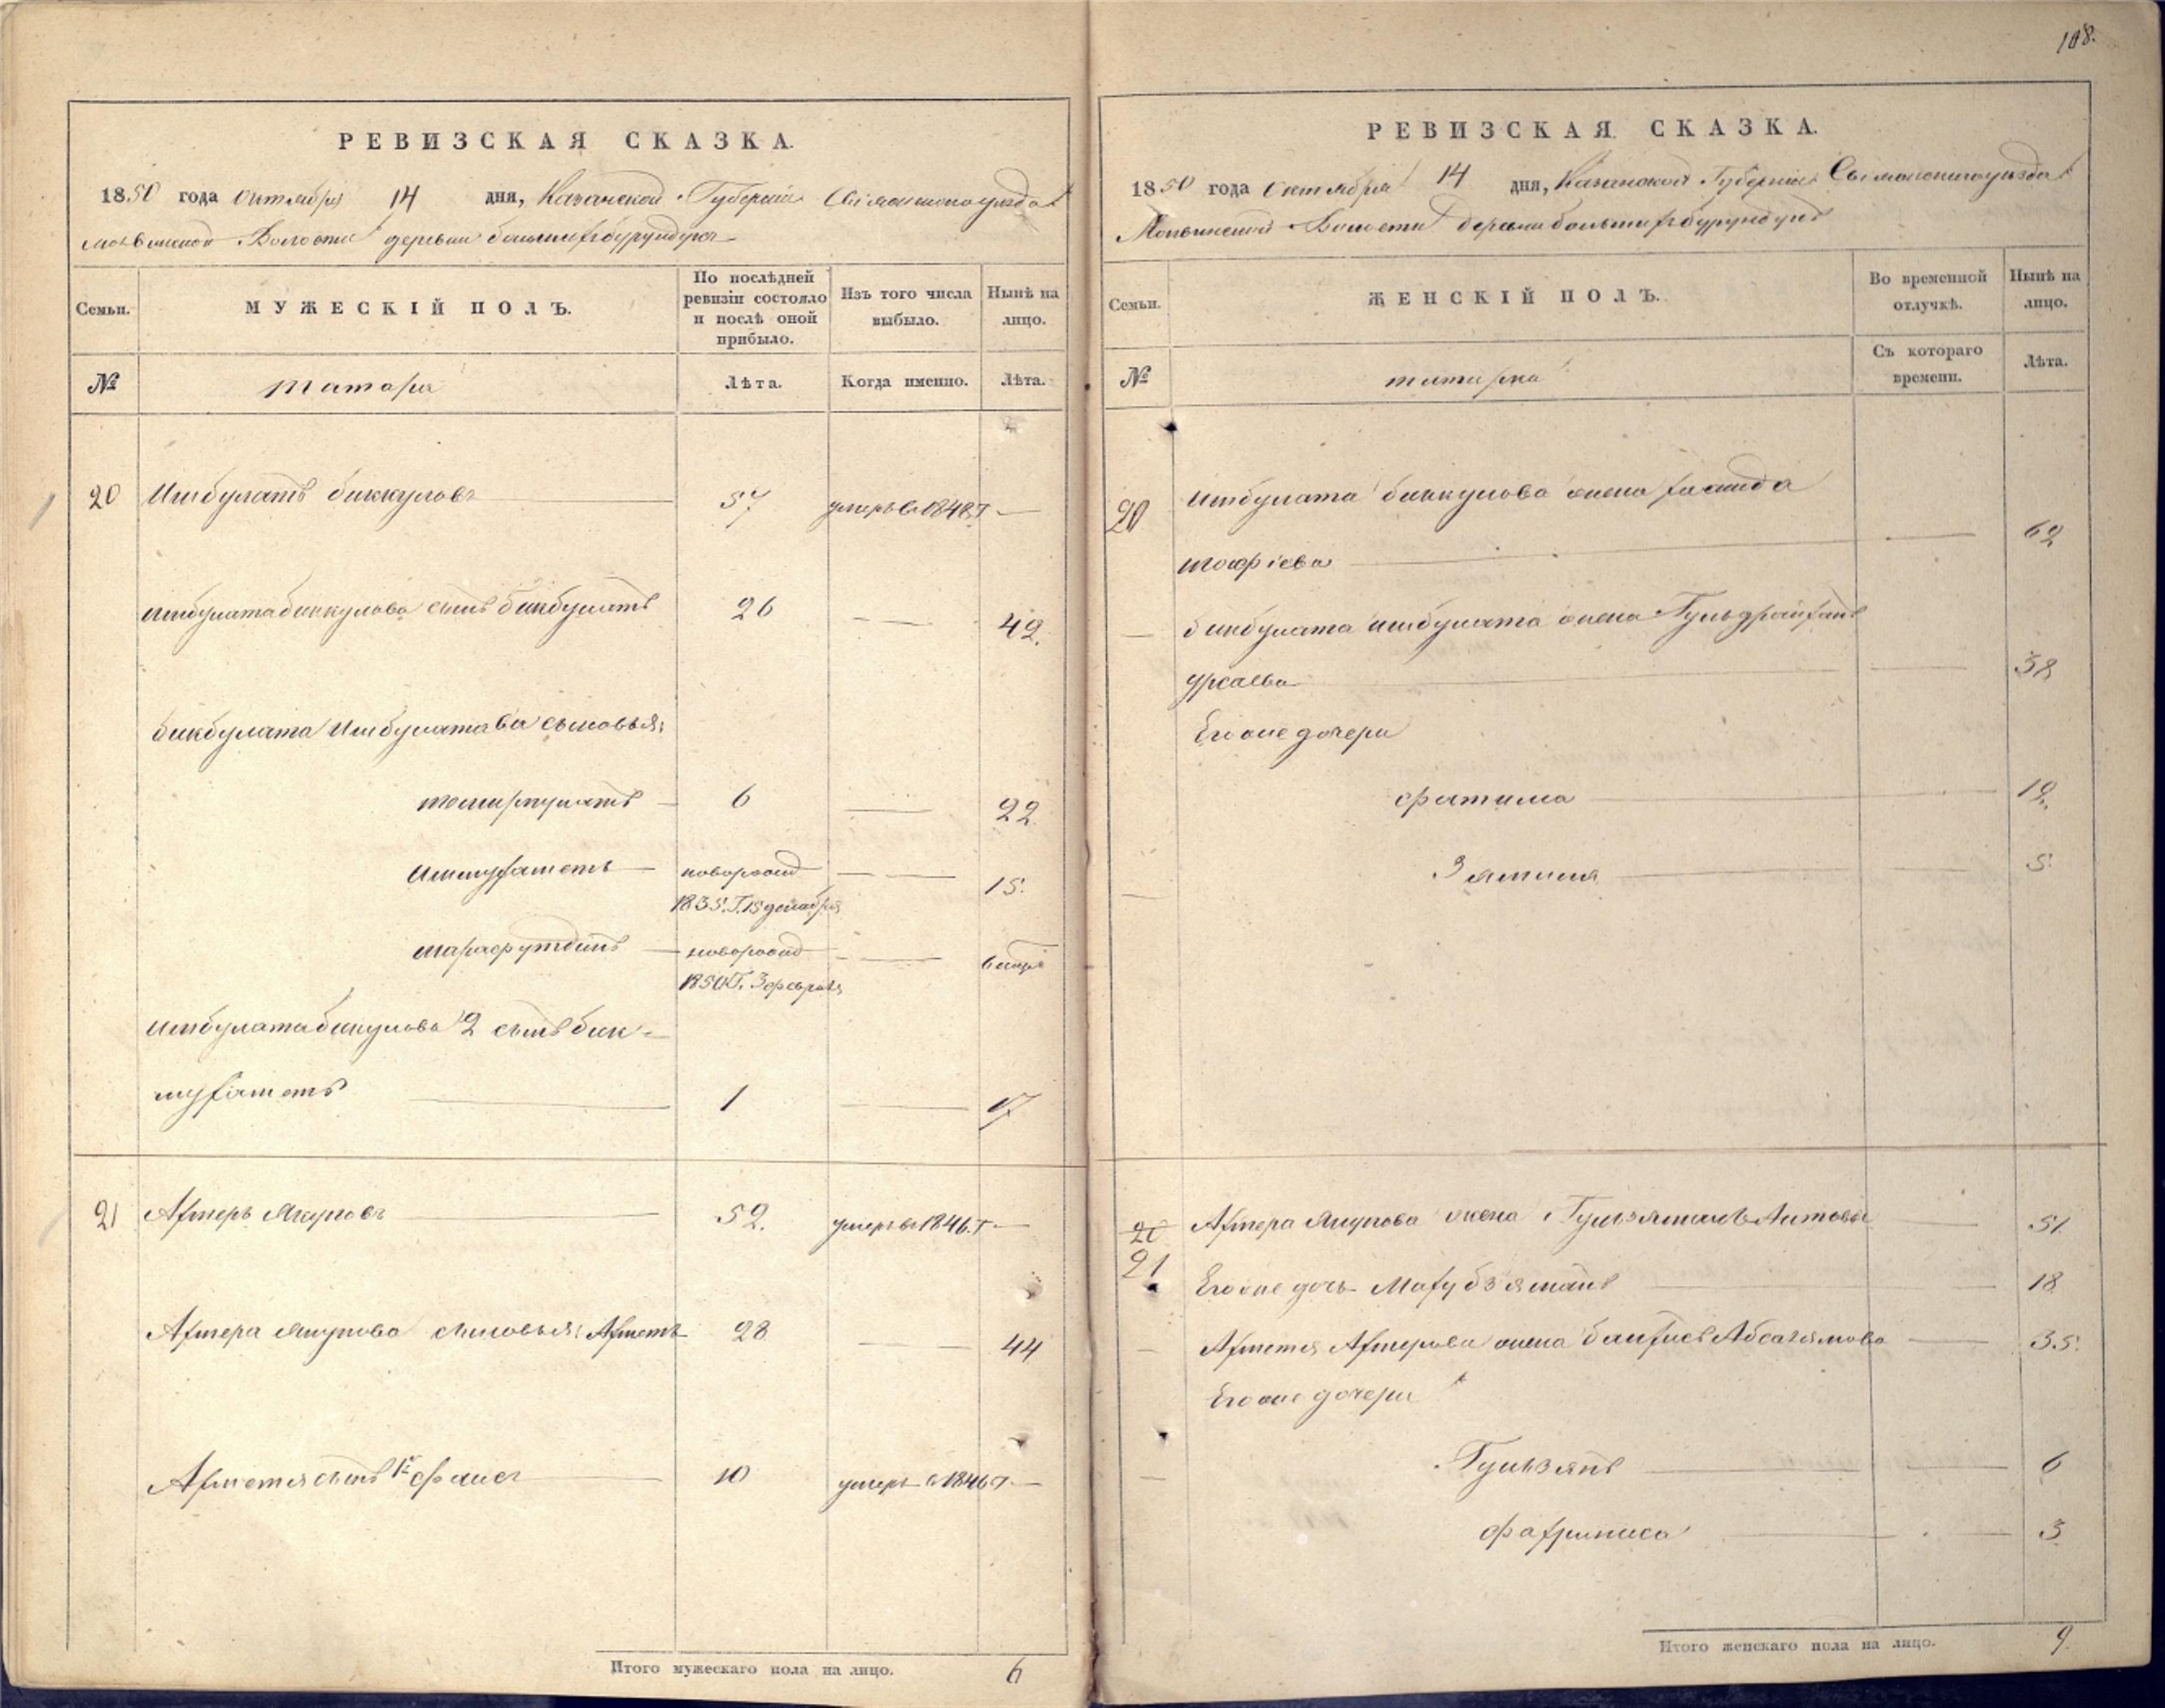 108.
РЕВИЗСКАЯ СКАЗКА.
1850 года октября 14 дня, Казанской Губернии Свіяжскаго уезда
Волости деревни большихъ бурундуков
Семьи.
МУЖЕСКІЙ ПОЛЪ.
По послѣдней ревизіи состояло и послѣ оной прибыло.
Изъ того числа выбыло.
Нынѣ на лицо.
№
татары
Лѣта.
Когда именно.
Лѣта.
20 Ишбулатъ биккуловъ 57 умеръ в 1848 г
ишбулата биккулова сынъ бикбулатъ 26 42.
бикбулата Ишбулатова сыновья:
6 22
Ишмухаметъ новорожд 15.
1835. Г. 15 декабря
шарафутдинъ новорожд
1850 Г. 3 февраля
ишбулата бикулова 2 сынъ бик-
мухаметъ 1 17
21 Ахмеръ Якуповъ 52. умеръ в 1846. г
Ахмера Якупова сыновья: Ахметъ 28 44
Ахметя сынъ 1й фаис 10 умеръ в 1846 г
Итого мужескаго пола на лицо. 6
РЕВИЗСКАЯ СКАЗКА.
1850 года октября 14 дня, Казанской Губернии Свіяжскаго уезда
Волости деревни большихъ бурундуковъ
Семьи.
ЖЕНСКІЙ ПОЛЪ.
Во временной отлучкѣ.
Нынѣ на лицо.
№
татарки
Съ котораго времени.
Лѣта.
20 ишбулата биккулова жена
62
бикбулата ишбулата жена
38
Его же дочери
фатима 12.
Зямиля 5
20 Ахмера Якупова жена Аитова 51
21 Его же дочь Махубзяманъ 18
Ахметя Ахмерова жена Абсалямова 35.
Его же дочери
Гульзянъ 6
фахриниса 3
Итого женскаго пола на лицо. 9.